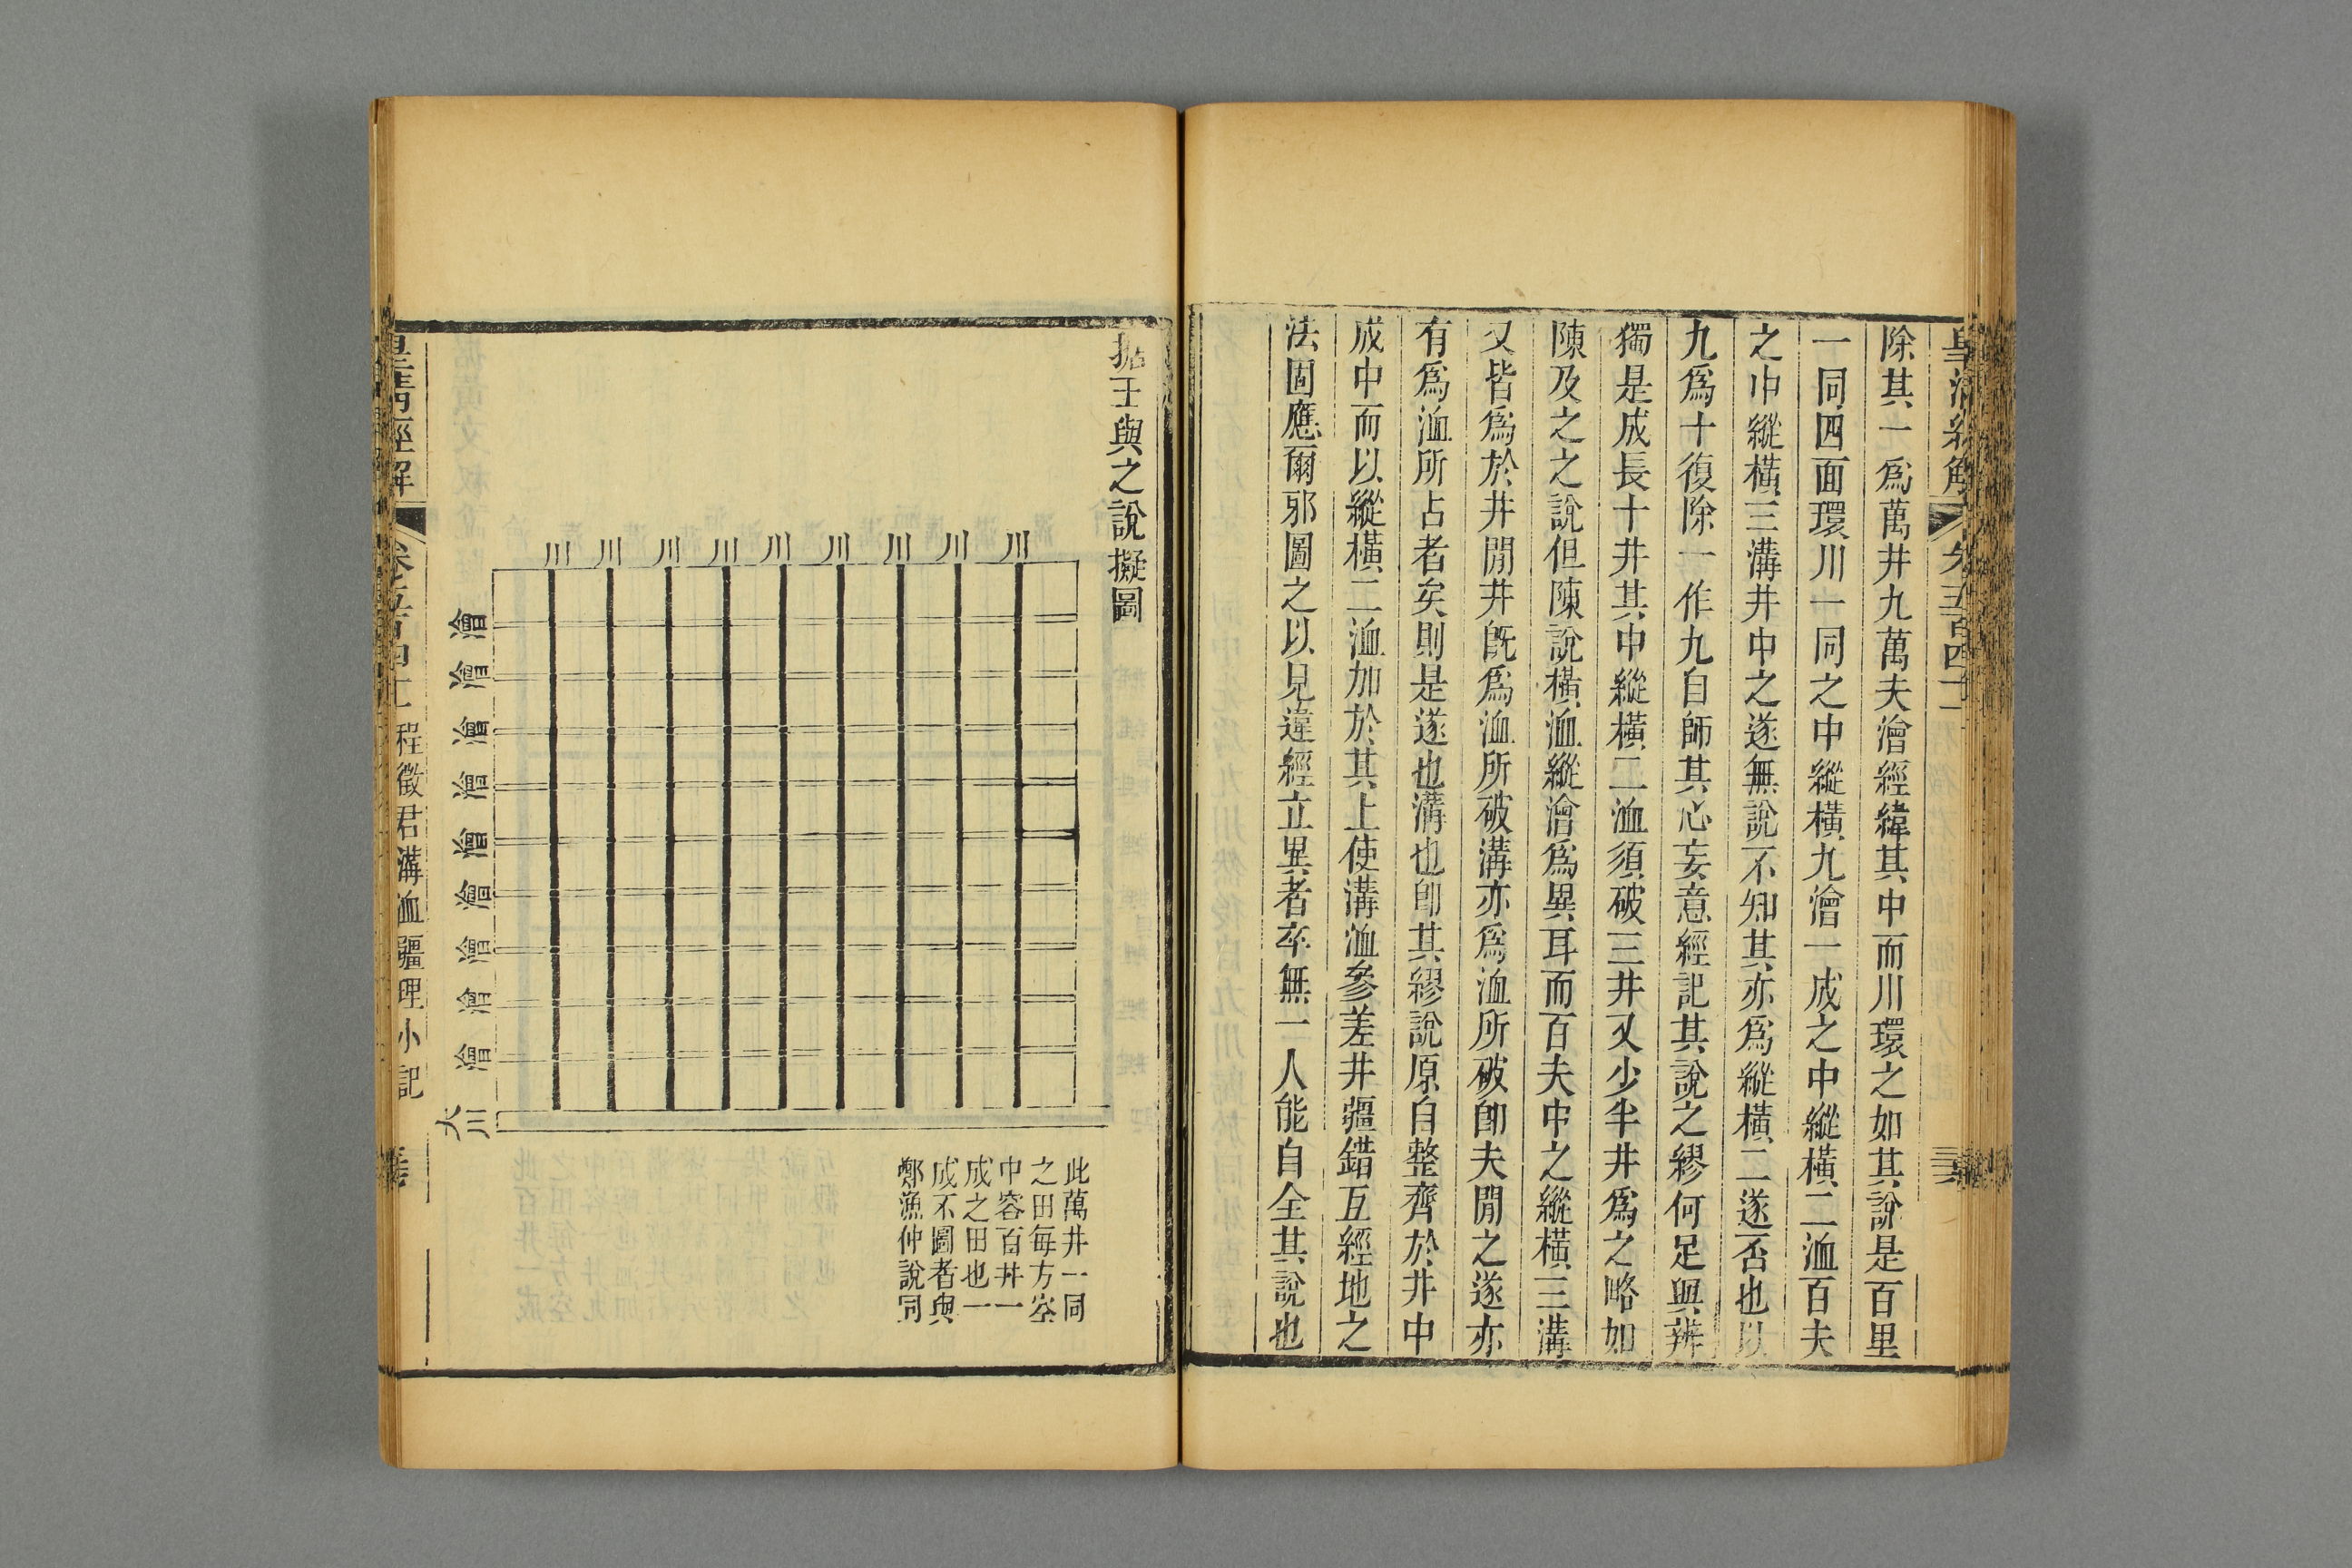 皇清經解
卷五百四十二
除其一爲萬井九萬夫澮經緯其中而川環之如其說是百里
一同四面環川一同之中縱橫九澮一成之中縱橫二洫百夫
之中縱橫三溝井中之遂無說不知其亦爲縱橫二遂否也以
九爲十復除一作九自師其心妄意經記其說之繆何足與辨
獨是成長十井其中縱橫二洫須破三井又少半井爲之略如
陳及之之說但陳說橫洫縱澮爲異耳而百夫中之縱橫三溝
又皆爲於井閒井旣爲洫所破溝亦爲洫所破卽夫閒之遂亦
有爲洫所占者矣則是遂也溝也卽其繆說原自整齊於井中
成中而以縱橫二洫加於其上使溝洫參差井疆錯互經地之
法固應爾邪圖之以見違經立異者卒無一人能自全其說也
据王與之說擬圖
川 川 川 川 川 川 川 川 川
澮
澮
澮
澮
澮
澮
澮
澮
澮
大川
此萬井一同
之田每方空
中容百井一
成之田也一
成不圖者與
鄭漁仲說同
皇清經解
卷五百四十二
程徵君溝洫疆理小記